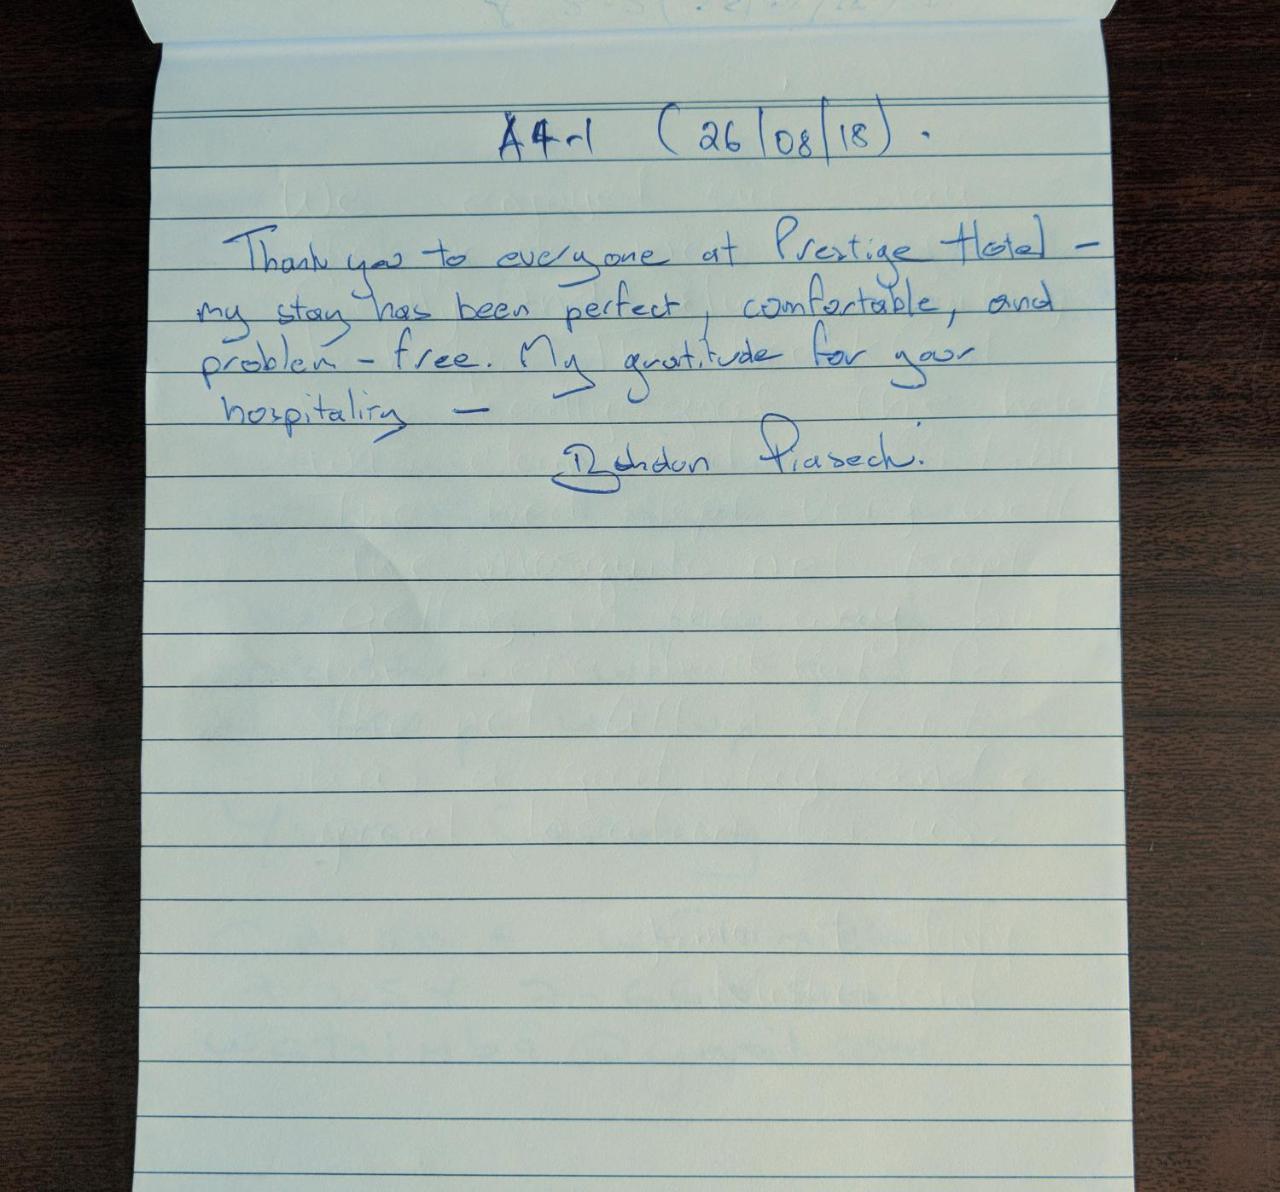 A4-1 (26/08/18).
Thank you to everyone at Prestige Hotel -
my stay has been perfect, comfortable, and
problem-free. My gratitude for your
hospitality -
Bohdan Piasecki